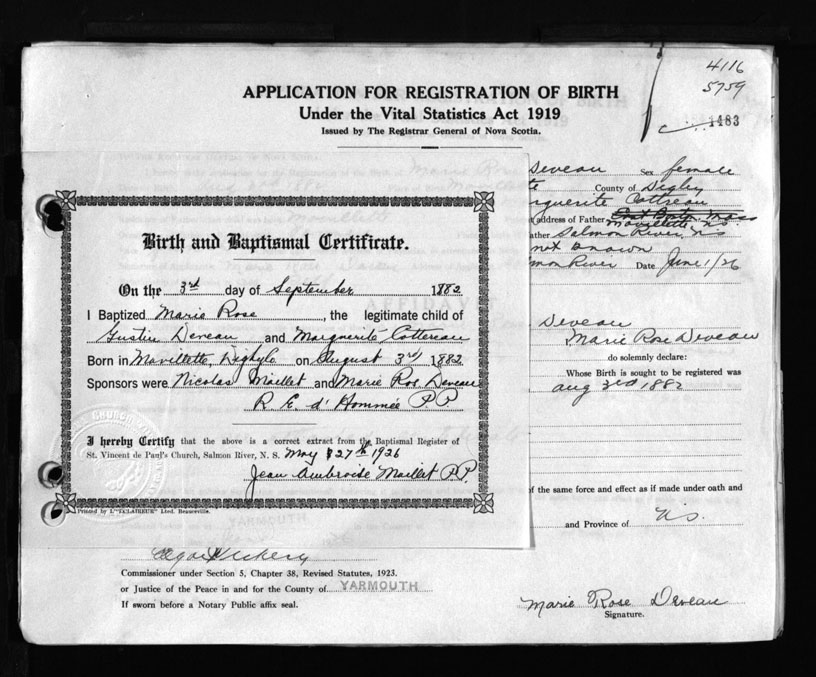 4116
5759
1483
APPLICATION FOR REGISTRATION OF BIRTH
Under the Vital Statistics Act 1919
Issued by The Registrar General of Nova Scotia.
Deveau Sex female
County of Digby
Marguerite Cottreau
address of Father Mass
Mavillette, N.S.
Salmon River, N.S.
not known
Salmon River Date June 1/26
Deveau
Marie Rose Deveau
do solemnly declare:
Whose Birth is sought to be registered was
aug 3rd 1882
of the same force and effect as if made under oath and
and Province of N.S.
Birth and Baptismal Certificate.
On the 3rd day of September 1882
I Baptized Marie Rose, the legitimate child of
Gustin Deveau and Marguerite Cottereau
Born in Mavillette, Digby Co on August 3rd 1882
Sponsors were Nicolas Maillet and Marie Ros Deveau
R. E. d'Hommée PP
I hereby Certify that the above is a correct extract from the Baptismal Register of
St. Vincent de Paul's Church, Salmon River, N. S. May 27th 1926
Jean Ambroise Maillet PP.
Printed by L'"ECLAIREUR" Lted. Beauceville.
Commissioner under Section 5, Chapter 38, Revised Statutes, 1923.
or Justice of the Peace in and for the County of YARMOUTH
If sworn before a Notary Public affix seal.
Marie Rose Deveau
Signature.